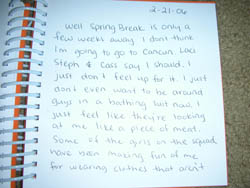 2-21-06
Well Spring Break is only a
few weeks away. I don't think
I'm going to go to Cancun. Laci
Steph & Cass say I should. I
just don't feel up for it. I just
don't even want to be around
guys in a bathing suit now. I
just feel like they're looking
at me like a piece of meat.
Some of the girls on the squad
have been making fun of me
for wearing clothes that aren't